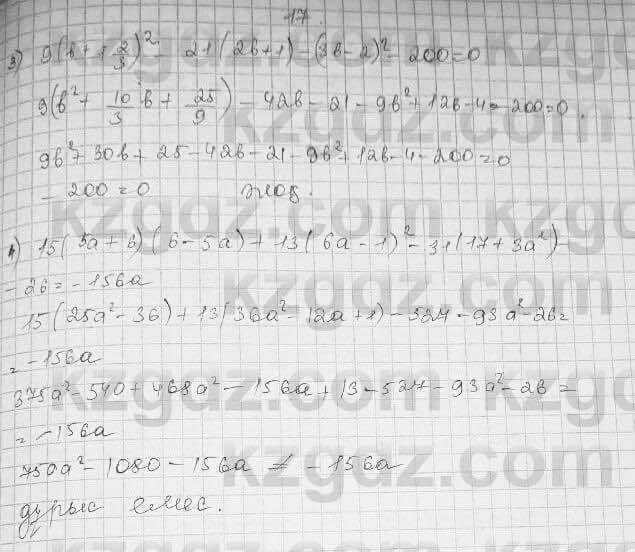 17.
3) 9(b+1 2/3)² - 21(2b+1) - (3b-2)² - 200=0
9(b² + 10/3 b + 25/9) - 42b - 21 - 9b² + 12b - 4 - 200=0.
9b² + 30b + 25 - 42b - 21 - 9b² + 12b - 4 - 200=0
- 200 = 0 жоқ.
4) 15(5a+6)(6-5a) + 13(6a-1)² - 31(17+3a²) -
- 26 = - 156a
15(25a² - 36) + 13(36a² - 12a + 1) - 527 - 93a² - 26 =
= - 156a
375a² - 540 + 468a² - 156a + 13 - 527 - 93a² - 26 =
= - 156a
750a² - 1080 - 156a ≠ - 156a
дұрыс емес.
kzgdz.com